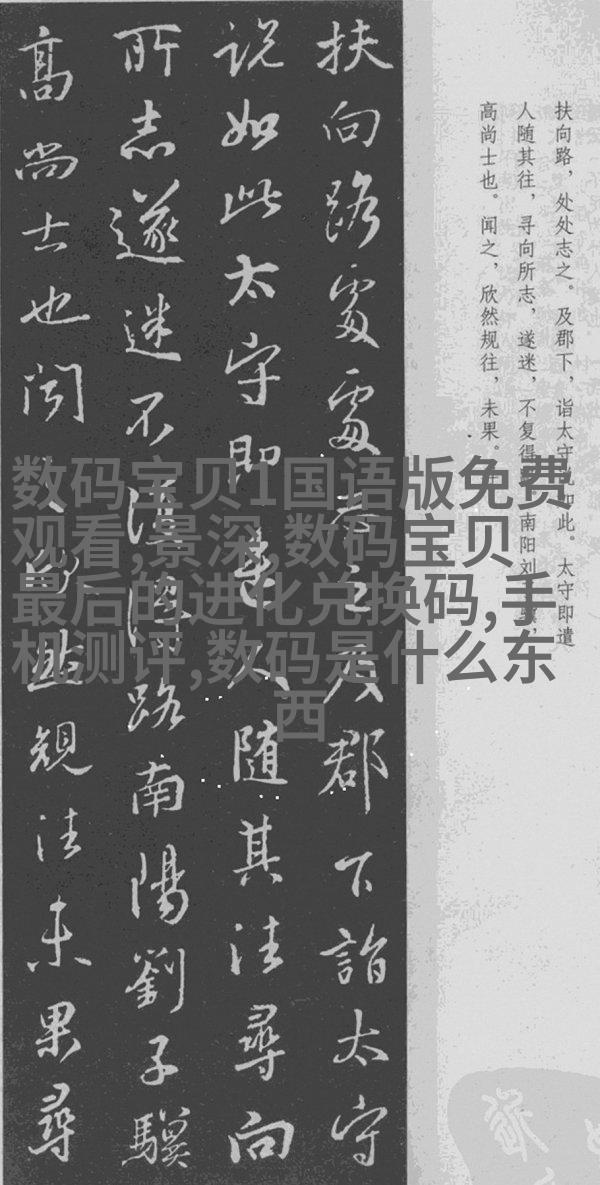 扶向路，处处志之。及郡下，诣太守说如此。太守即遣
人随其往，寻向所志，遂迷，不复得路。南阳刘子骥，
高尚士也。闻之，欣然规往，未果。
扶向路處處志之及郡下詣太守
说如此太守即遣人随其往尋向
所志遂迷不復得路南陽劉子驥
高尚士也闻之欣然規往未果尋
数码宝贝1国语版免费
观看,景深,数码宝贝
最后的进化兑换码,手
机测评,数码是什么东
西